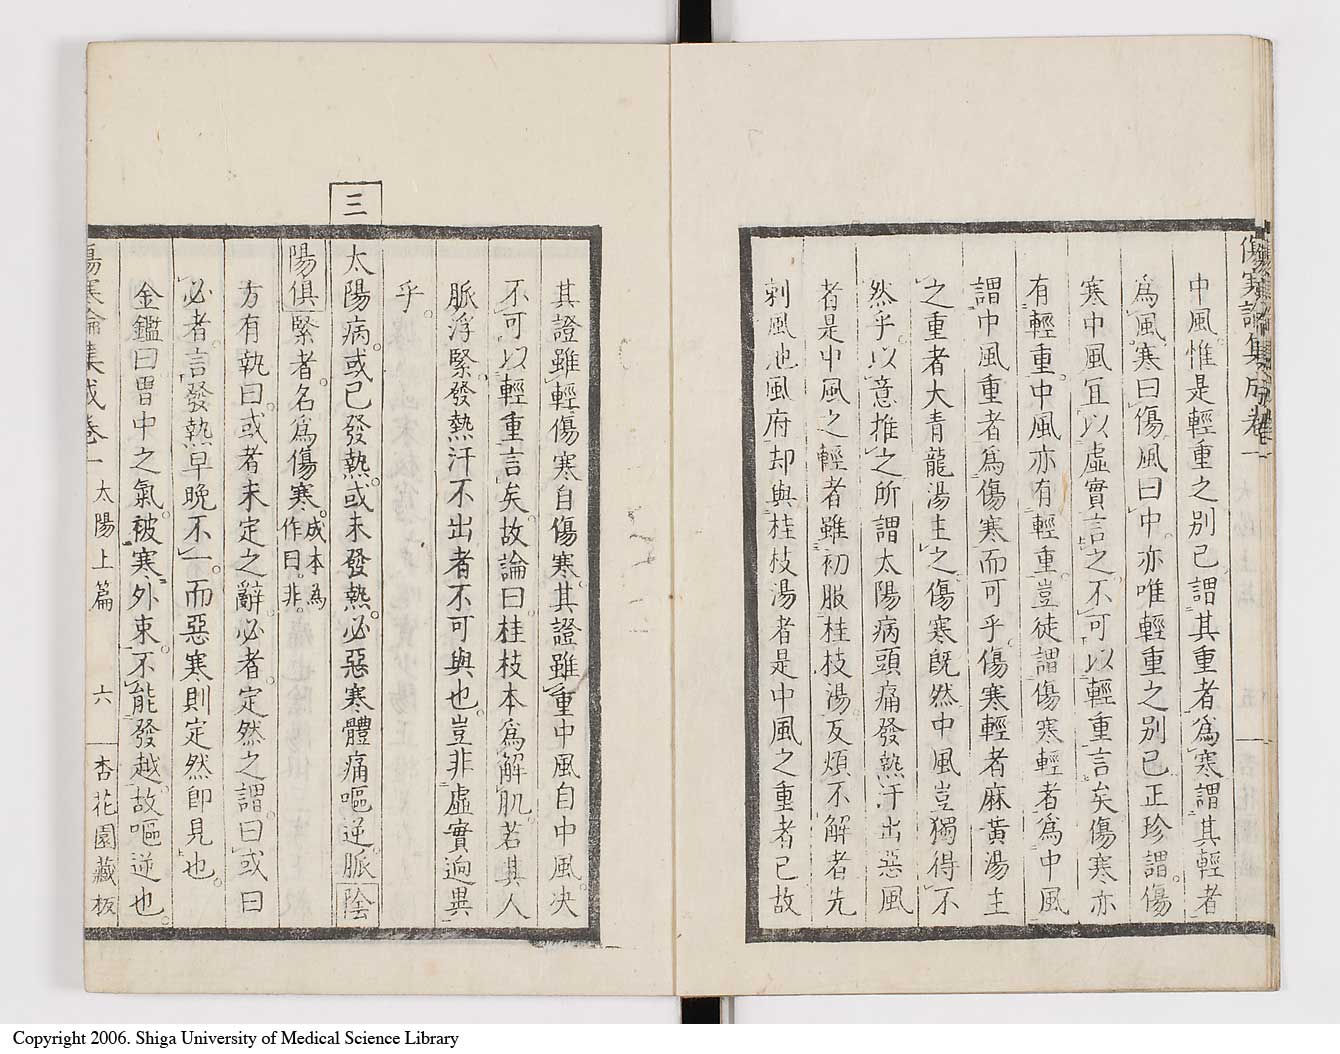 傷寒論集成卷一
中風。惟是輕重之別已。謂其重者爲寒。謂其輕者
爲風。寒曰傷。風曰中。亦唯輕重之別已。正珍謂。傷
寒中風宜以虛實言之。不可以輕重言矣。傷寒亦
有輕重。中風亦有輕重。豈徒謂傷寒輕者爲中風
謂中風重者爲傷寒而可乎。傷寒輕者麻黃湯主
之重者大青龍湯主之。傷寒既然中風豈獨得不
然乎。以意推之。所謂太陽病頭痛發熱汗出惡風
者是中風之輕者雖初服桂枝湯。反煩不解者先
刺風池風府却與桂枝湯者是中風之重者已故
其證雖輕傷寒自傷寒。其證雖重中風自中風。决
不可以輕重言矣。故論曰桂枝本爲解肌。若其人
脈浮緊。發熱汗不出者不可與也。豈非虛實逈異
乎。
三
太陽病。或已發熱。或未發熱。必惡寒體痛嘔逆。脈陰
陽俱緊者。名爲傷寒。成本為作曰。非。
方有執曰。或者未定之辭。必者。定然之謂。曰或曰
必者。言發熱早晚不一。而惡寒則定然卽見也。
金鑑曰胃中之氣。被寒外束。不能發越。故嘔逆也。
傷寒論集成卷一 太陽上篇 六 杏花園藏板
Copyright 2006. Shiga University of Medical Science Library